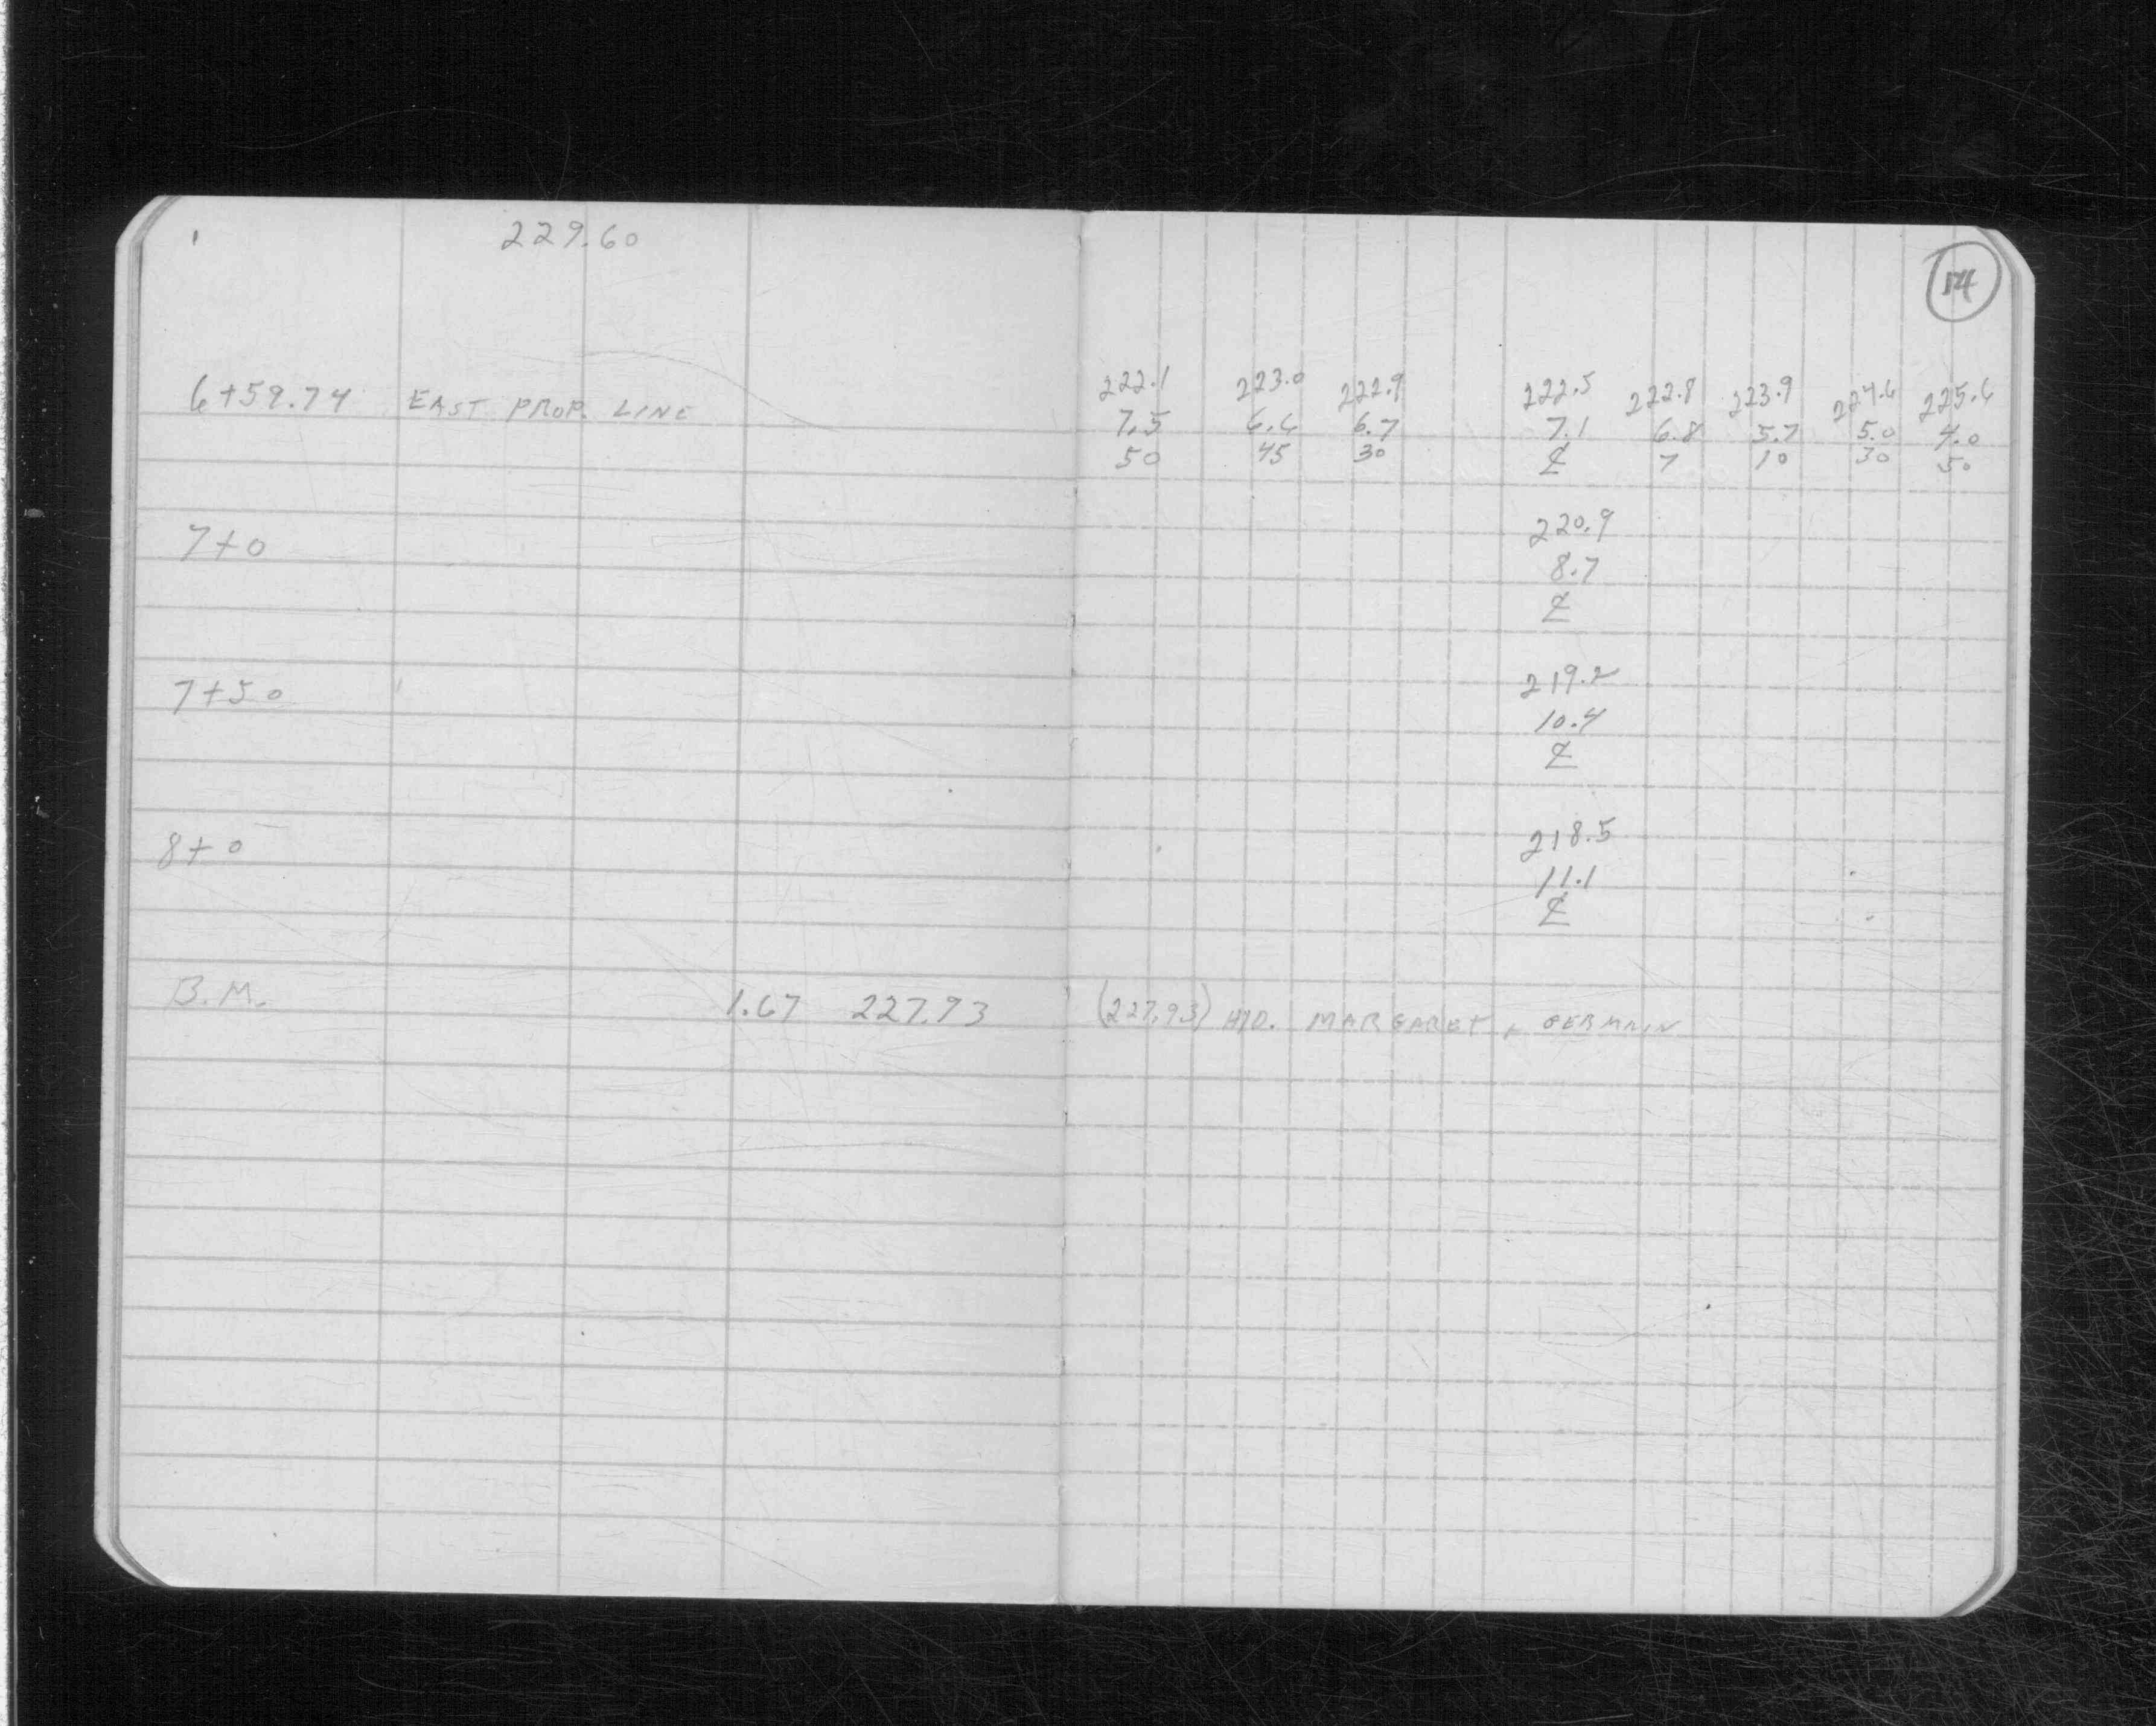 229.60
14
222.1 223.0 222.9 222.5 222.8 223.9 224.6 225.6
6+59.74 EAST PROP. LINE 7.5 6.6 6.7 7.1 6.8 5.7 5.0 4.0
50 45 30 ℄ 7 10 30 50
220.9
7+0 8.7
℄
219.2
7+50 10.4
℄
218.5
8+0 11.1
℄
B.M. 1.67 227.93 (227.93) HYD. MARGARET + GERMAIN